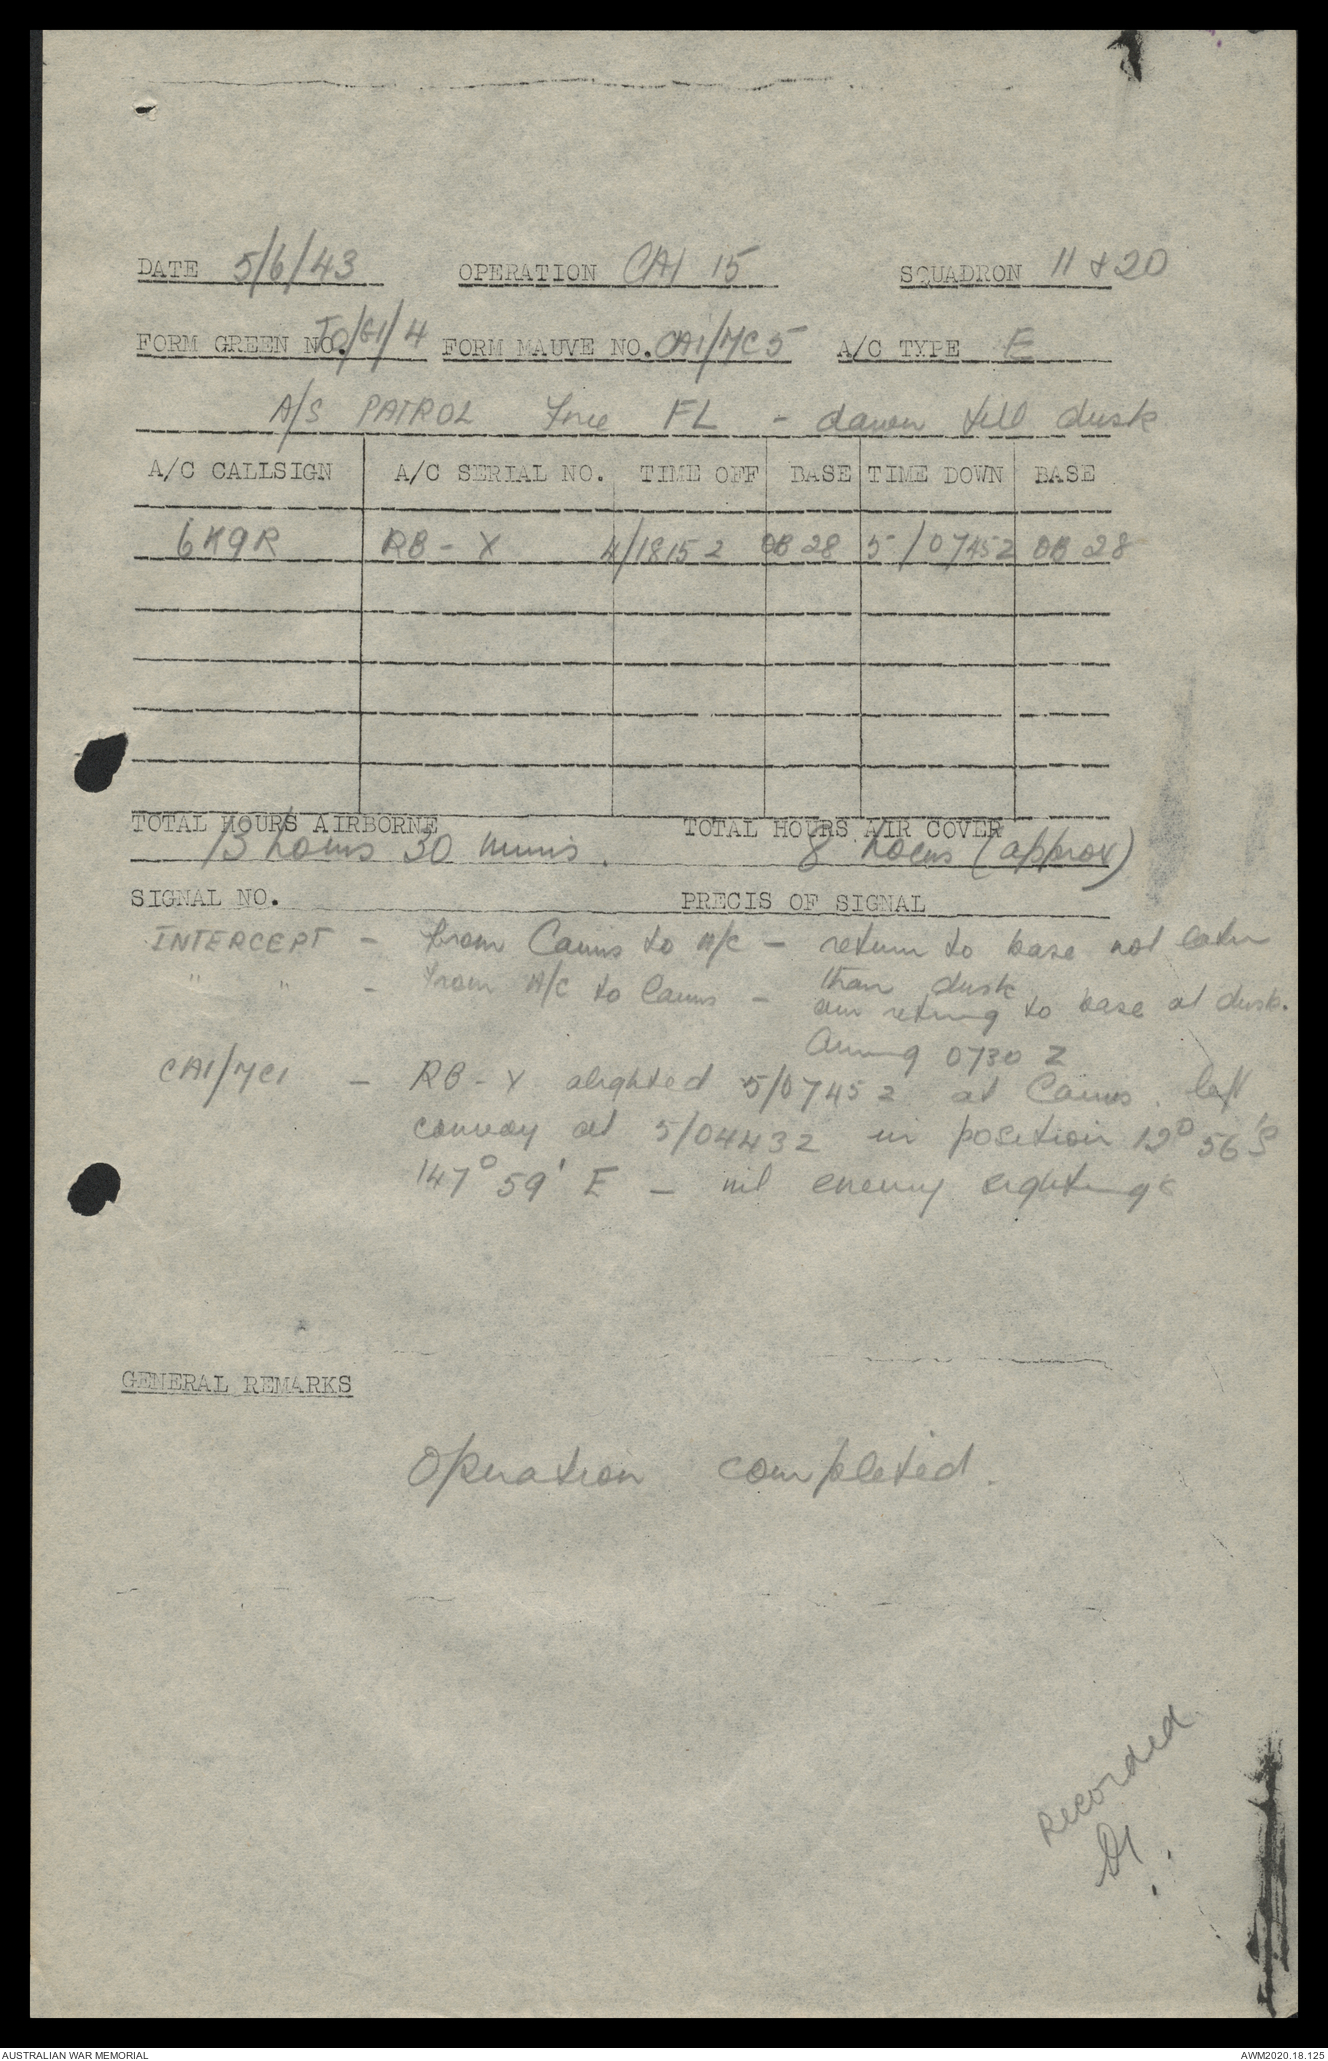 DATE 5/6/43 OPERATION CA1 15 SQUADRON 11 & 20
FORM GREEN NO. TO/G1/4 FORM MAUVE NO. CA1/MC5 A/C TYPE E
A/S PATROL FL - dawn till dusk
A/C CALLSIGN A/C SERIAL NO. TIME OFF BASE TIME DOWN BASE
6K9R RB - X 4/1815Z OB 28 5/0745Z OB 28
TOTAL HOURS AIRBORNE TOTAL HOURS AIR COVER
13 hours 30 mins. 8 hours (approx)
SIGNAL NO. PRECIS OF SIGNAL
INTERCEPT - from Cairns to A/C - return to base not later
than dusk
" " - from A/C to Cairns - am retrng to base at dusk.
Arrvng 0730 Z
CA1/MC1 - RB - X alighted 5/0745Z at Cairns. left
convoy at 5/0443Z in position 12° 56'S
147° 59' E - nil enemy sightings
GENERAL REMARKS
Operation completed.
Recorded
AUSTRALIAN WAR MEMORIAL AWM2020.18.125